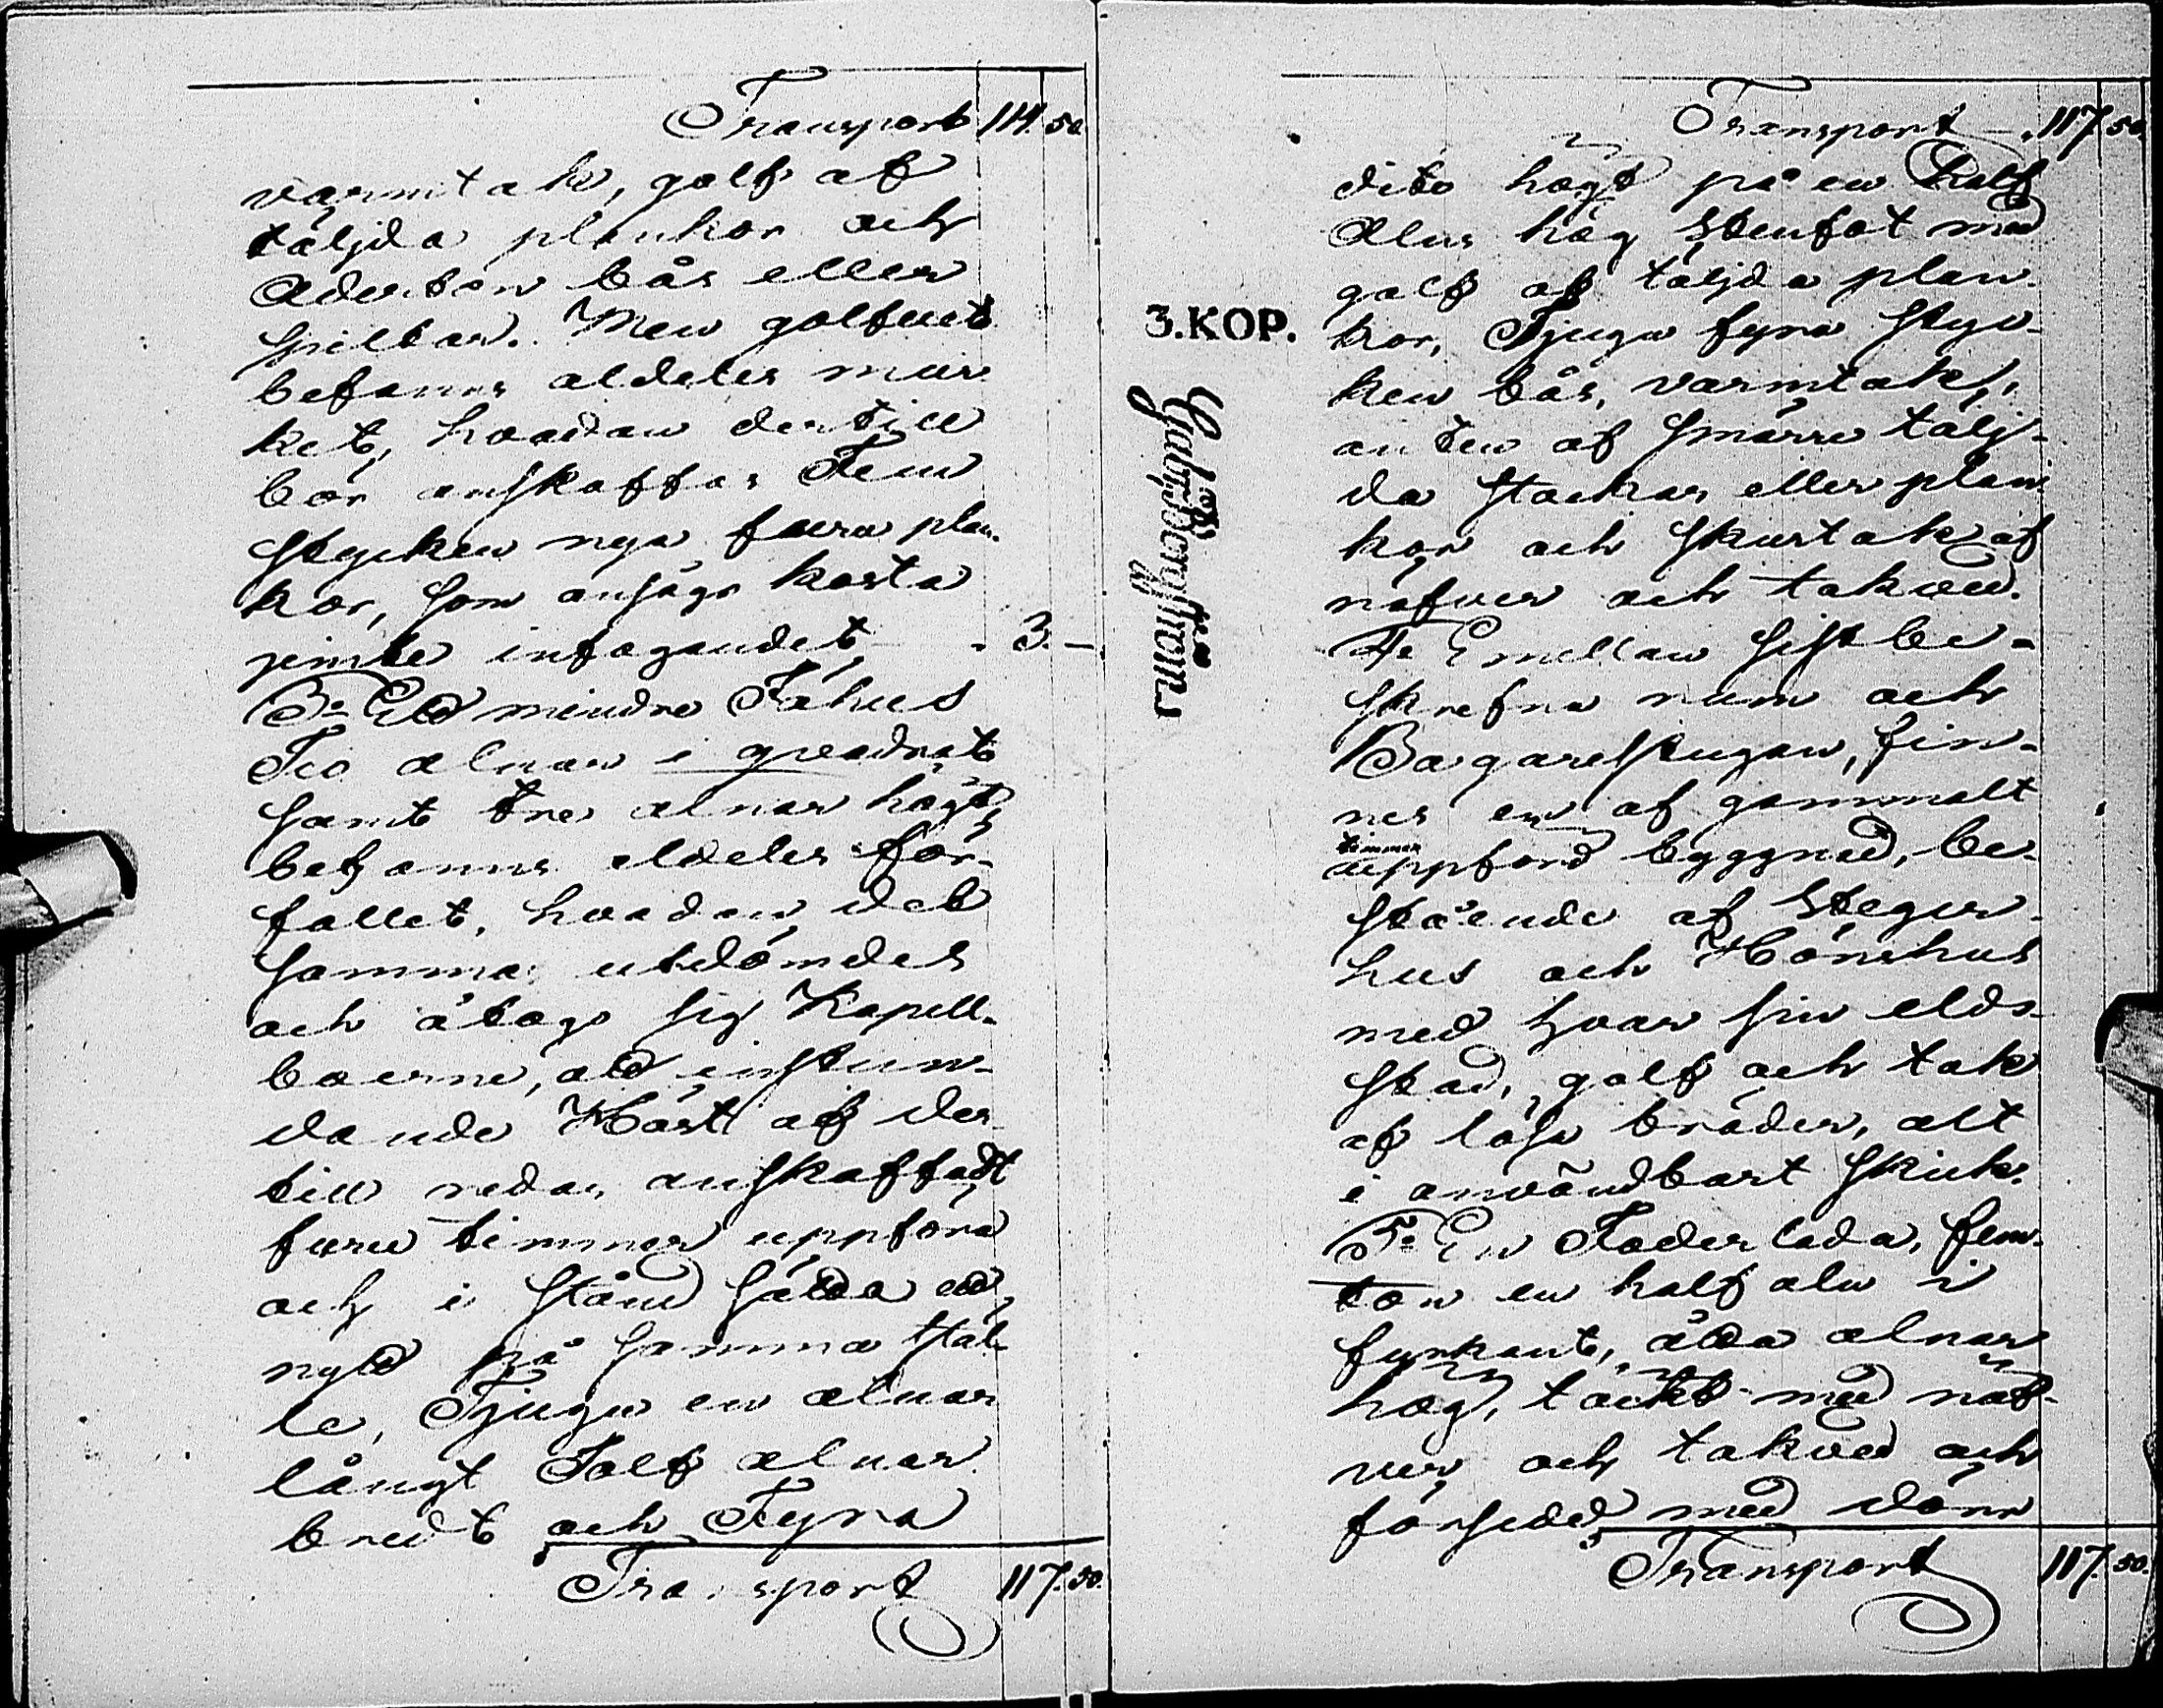 Transport 114. 50
varmtak, golf af
täljda plankor och
Aderton bås eller
spiltar. Men golfvet
befanns aldeles mur-
ket, hvadan dertill
bör anskaffas Fem
stycken nya furu plan-
kor, som ansågs kosta
jemte infogandet - 3. -
3:o Ett mindre Fähus
Tio alnar i qvadrat
samt tre alnar högt,
befanns aldeles för-
fallet, hvadan det
samma utdömdes
och åtogo sig Kapell-
boerne, att instun-
dande Höst af der-
till redan anskaffadt
furu timmer uppföra
och i stånd sätta ett
nytt på samma stäl-
le, Tjugu en alnar
långt Tolf alnar
bredt och Fyra
Transport 117. 50.
Transport 117. 50
dito högt på en half
Alns hög stenfot med
golf af täljda plan-
kor, Tjugu fyra styc-
ken bås, varmtak,
anten af smärre tälj-
da stockar eller plan-
kor och skurtak af
näfver och takved.
4:o Emellan sist be-
skrefna rum och
Bagarestugan, fin-
nes en af gammalt
timmer
uppförd byggnad, be-
stående af Steger-
hus och Hönshus
med hvar sin elds-
stad, golf och tak
af lösa bräder, alt
i användbart skick.
5:o En Foderlada, fem-
ton en half aln i
fyrkant, åtta alnar
hög, täckt med näf-
ver och takved och
försedd med dörr
Transport 117. 50.
3. KOP.